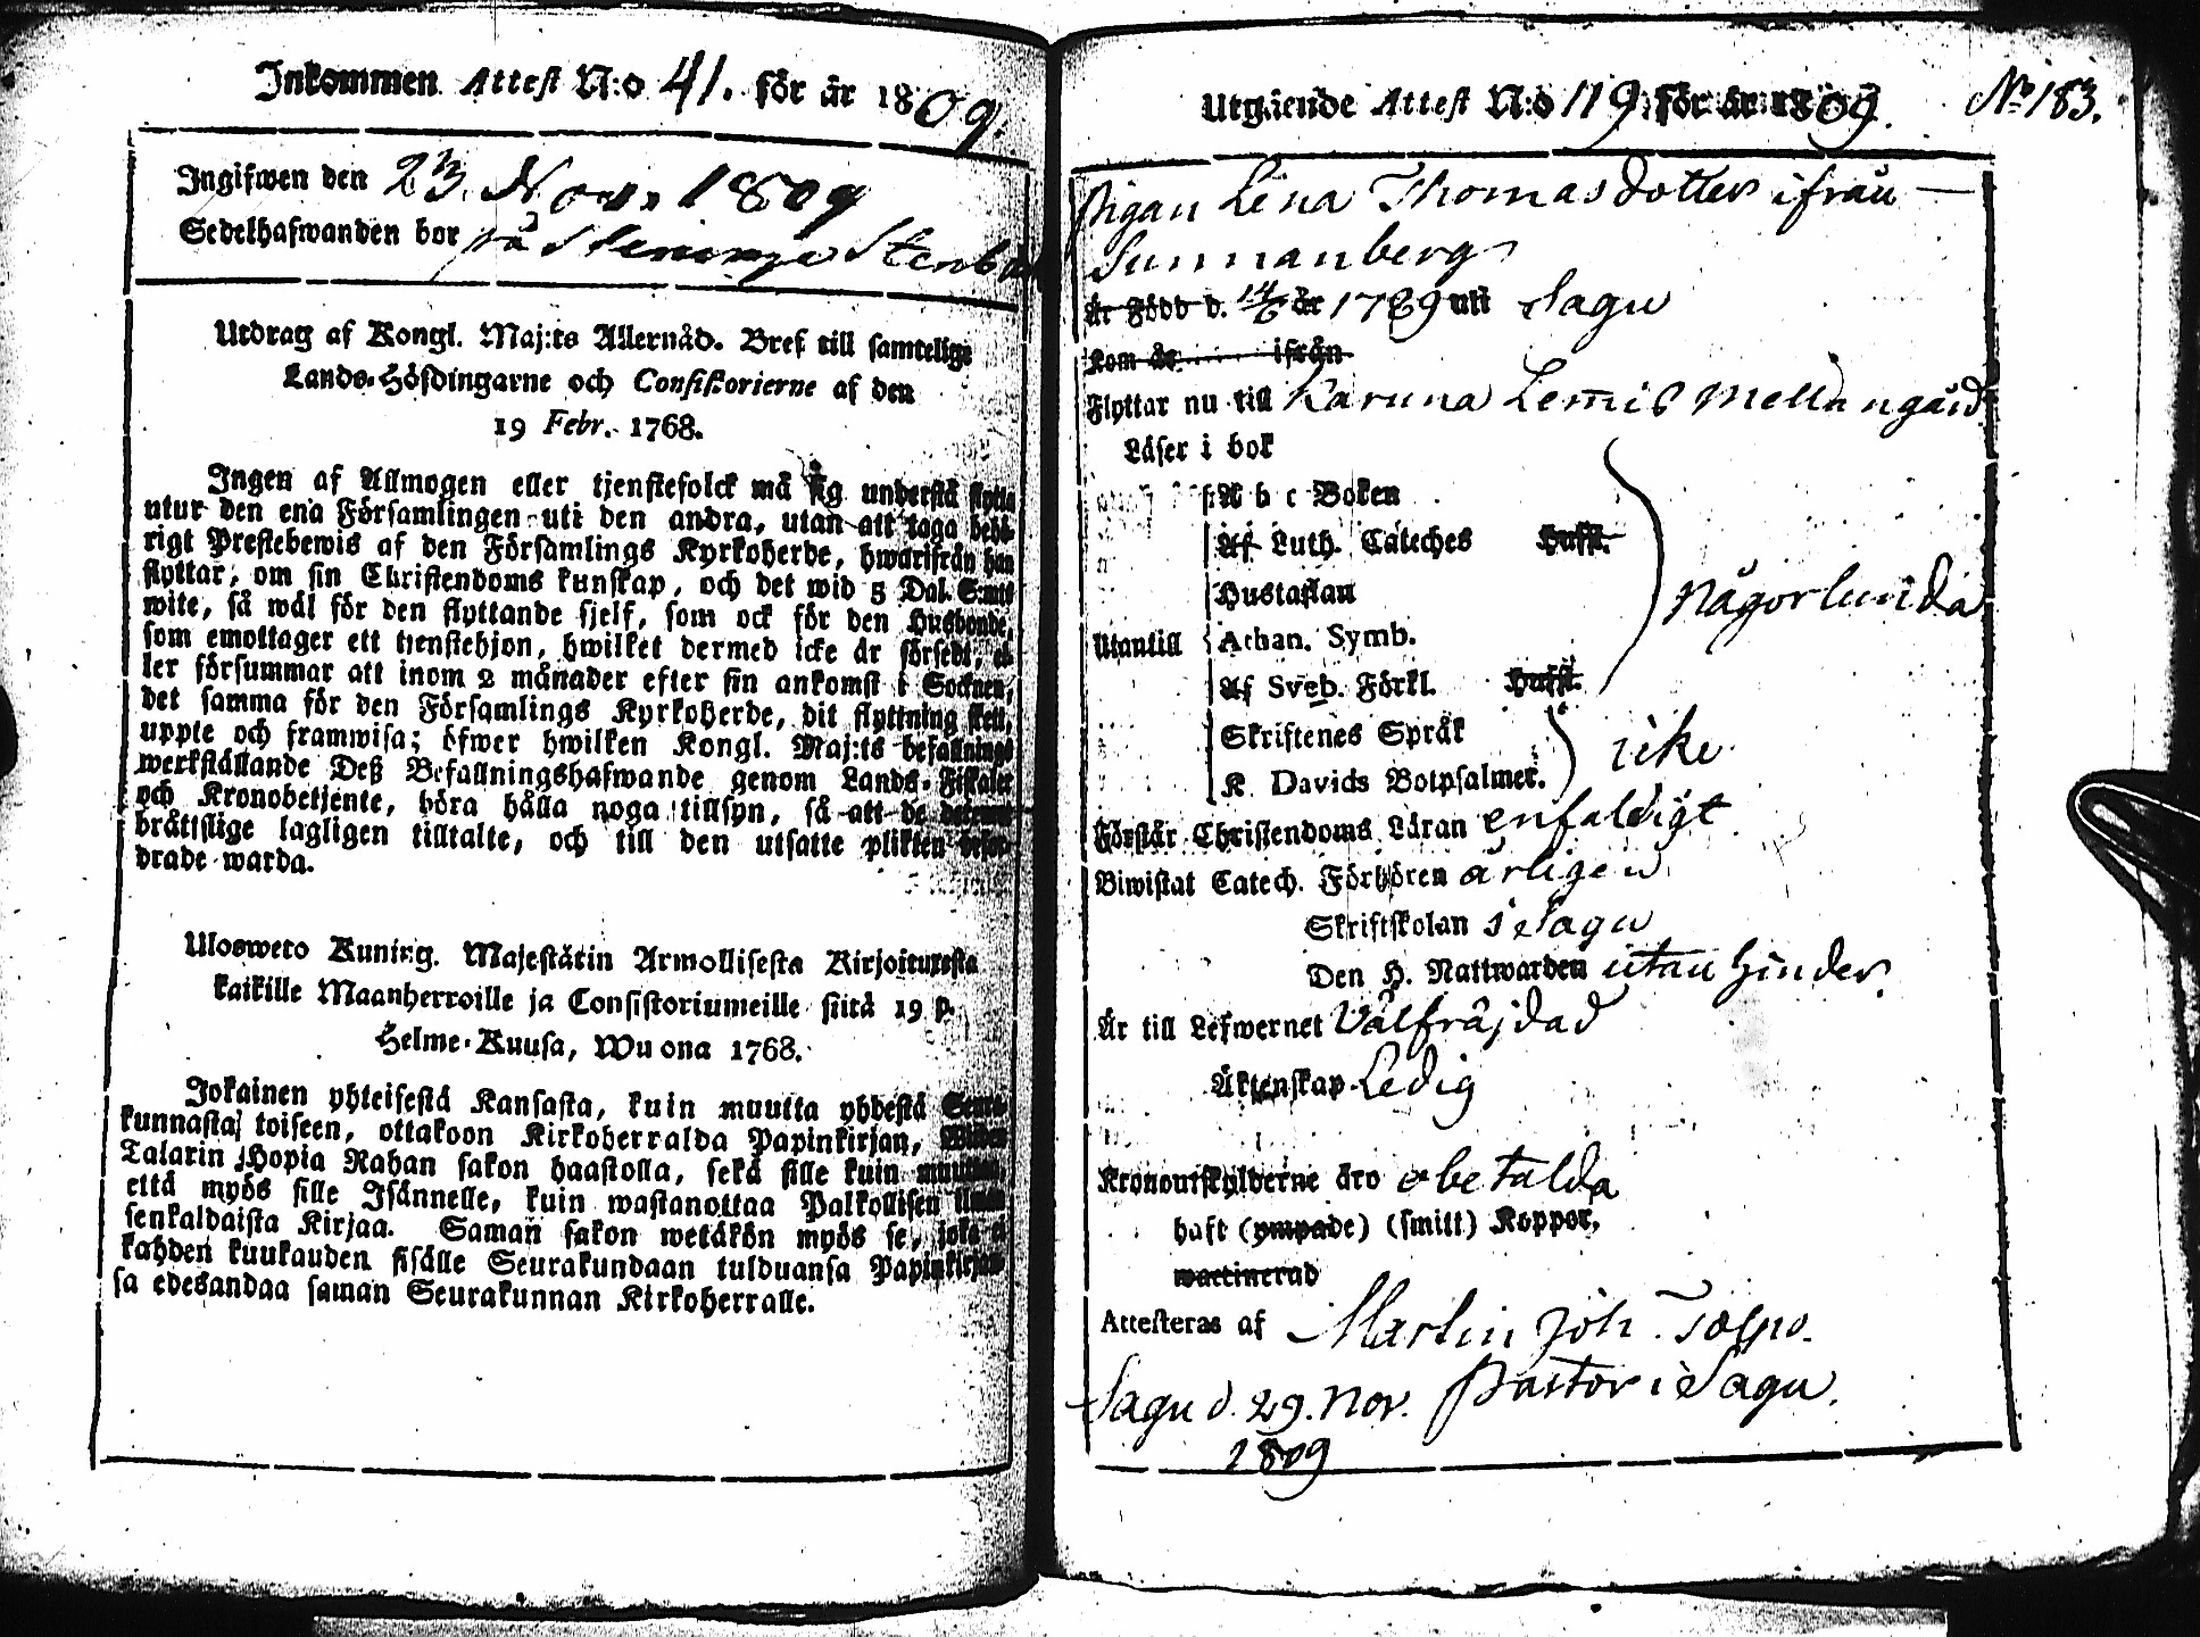 Inkommen Attest N:o 41. för år 1809.
Ingifwen den 23. Nov. 1809
Sedelhafwanden bor på
Utdrag af Kongl. Maj:ts Allernåd. Bref till samtelige
Lands-Höfdingarne och Consistorierne af den
19 Febr. 1768.
Ingen af Allmogen eller tjenstefolck må sig understå flytta
utur den ena Församlingen uti den andra, utan att taga behö-
rigt Prestebewis af den Församlings Kyrkoherde, hwarifrån han
flyttar, om sin Christendoms kunskap, och det wid 5 Dal. S:mts
wite, så wäl för den flyttande sjelf, som ock för den Husbonde,
som emottager ett tjenstehjon, hwilket dermed icke är försedt, el-
ler försummar att inom 2 månader efter sin ankomst i Socknen,
det samma för den Församlings Kyrkoherde, dit flyttning skett,
uppte och framwisa; öfwer hwilken Kongl. Maj:ts befallnings
werkställande Deß Befallningshafwande genom Lands-Fiskaler
och Kronobetjente, böra hålla noga tillsyn, så att de
bråttslige lagligen tilltalte, och till den utsatte plikten befor-
drade warda.
Ulosweto Kuning. Majestätin Armollisesta Kirjoituxesta
kaikille Maanherroille ja Consistoriumeille siitä 19 p.
Helme-Kuusa, Wuona 1768.
Jokainen yhteisestä Kansasta, kuin muutta yhdestä Seura-
kunnasta toiseen, ottakoon Kirkoherralda Papinkirjan, Wijden
Talarin Hopia Rahan sakon haastolla, sekä sille kuin muuttaa,
että myös sille Isännelle, kuin wastanottaa Palkollisen ilman
senkaldaista Kirjaa. Saman sakon wetäkön myös se, joka ei
kahden kuukauden sisälle Seurakundaan tulduansa Papinkirjan-
sa edesandaa saman Seurakunnan Kirkoherralle.
Utgående Attest N:o 119 för år 1809. No 183.
Pigan Lena Thomasdotter ifrån
Sunnanberg
Är Född d. 14/6 år 1789 uti Sagu
Kom år ifrån
Flyttar nu till Karuna Lemis Mellangård
Läser i bok
A b c Boken
Af Luth. Cateches Hust.
Hustaflan
Utantill Athan. Symb. någorlunda
Af Sveb. Förkl. Hust.
Skriftenes Språk
K. Davids Botpsalmer. icke
Förstår Christendoms Läran enfaldigt
Biwistat Catech. Förhören årligen
Skriftskolan i Sagu
Den H. Nattwarden utan hinder.
Är till Lefwernet Välfräjdad
Äktenskap Ledig
Kronoutskylderne äro obetalda
haft (ympade) (smitt) Koppor.
waccinerad
Attesteras af Martin Joh. Tolpo.
Sagu d. 29. Nov. Pastor i Sagu.
1809